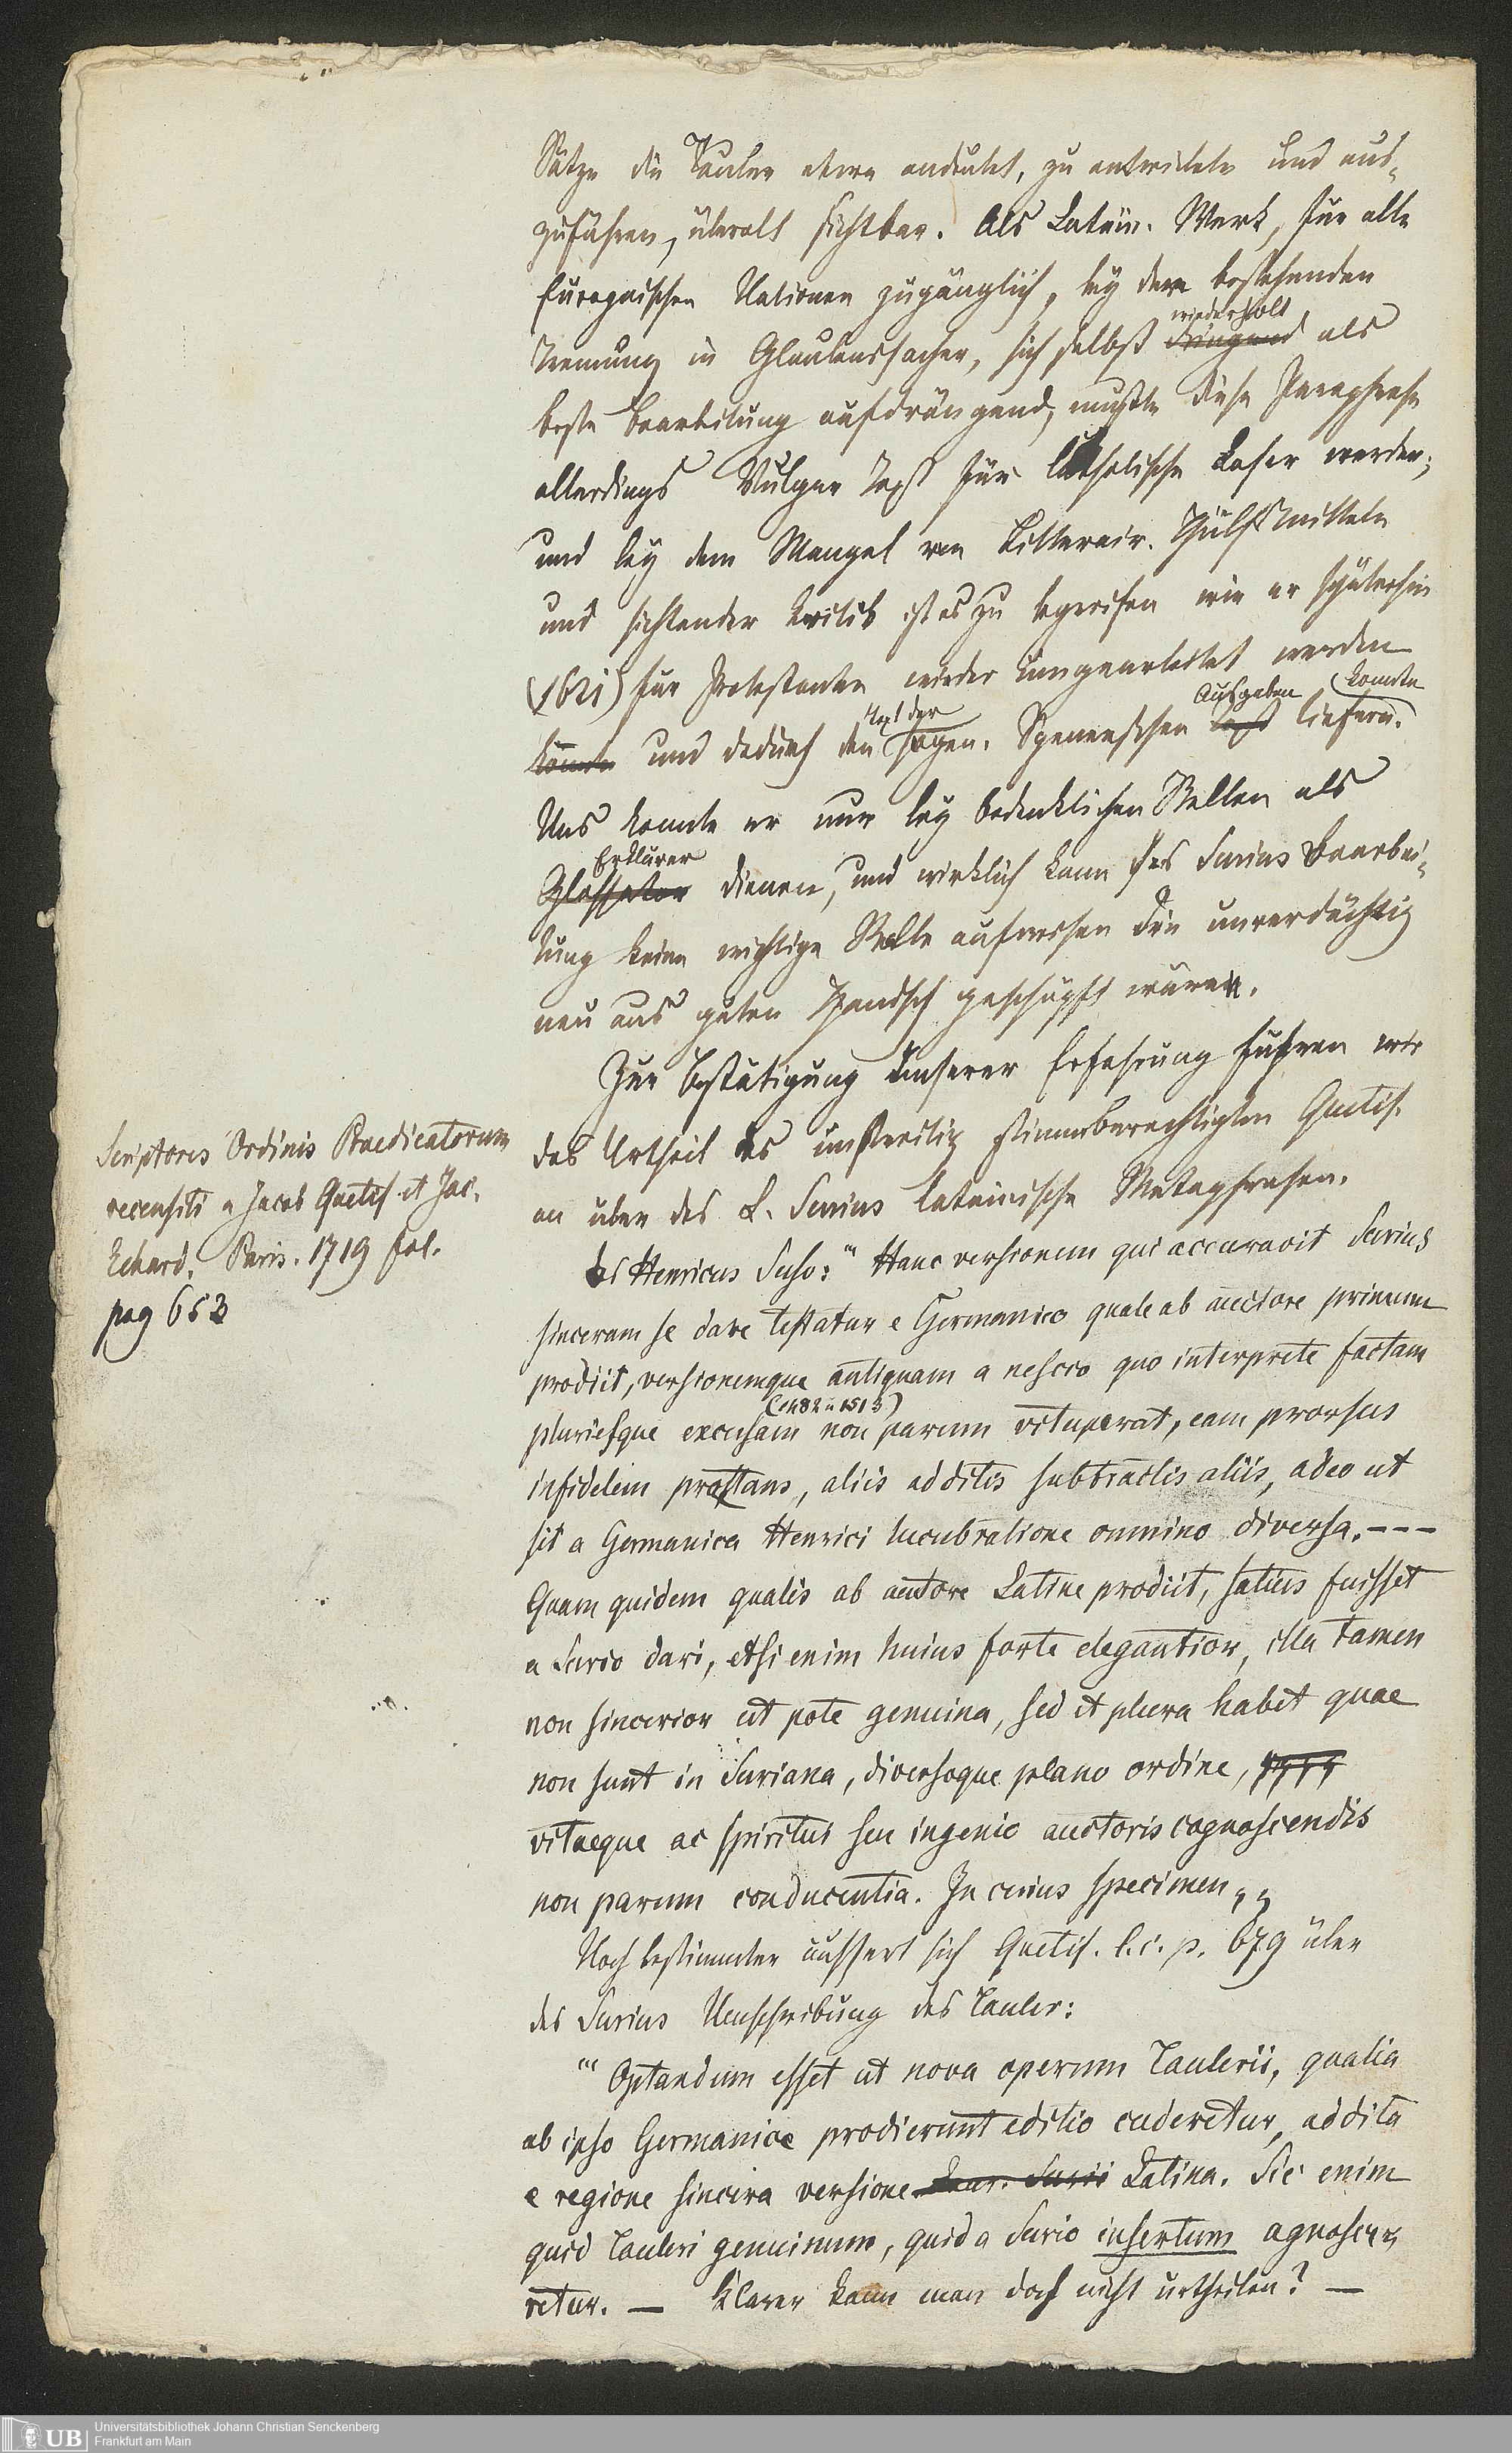 Sätze die Tauler etwa andeutet, zu entwickeln und aus-
zuführen, überall sichtbar. Als Latein. Werk, für alle
Europaischen Nationen zugänglich, bey der bestehenden
wiederholt
Trennung in Glaubenssachen, sich selbst dringend als
beste Bearbeitung aufdrängend, mußte diese Paraphrase
allerdings Vulgar Text für katholische Leser werden;
und bey dem Mangel von Litterair. Hülfsmitteln
und sichtender Kritik ist es zu begreifen wie er späterhin
(1621) für Protestanten wieder umgearbeitet werden
Text der Ausgaben konnte
könnte und dadurch den sogen. Spenerschen Text liefern.
Uns konnte er nur bey bedenklichen Stellen als
Erklärer
Glossator dienen, und wirklich kann des Surius Bearbei-
tung keine wichtige Stelle aufweisen die unverdächtig
neu aus guten Handsch geschöpft wären.
Zur Bestätigung unserer Erfahrung führen wir
das Urtheil des unstreitig stimmberechtigten Quetif.
an über des L. Surius lateinische Metaphrasen.
Scriptores Ordinis Praedicatorum
recensiti a Jacob Quetif et Jac.
Echard. Paris. 1719 fol.
pag 653
des Henricus Suso: " Hanc versionem qui accuravit Surius
sinceram se dare testatur e Germanico quale ab auctore primum
prodiit, versionemque antiquam a nescio quo interprete factam
(1482 u 1513)
pluriesque excusam non parum vituperat, eam prorsus
infidelem prostans, aliis additis subtractis aliis, adeo ut
sit a Germanica Henrici lucubratione omnino diversa. ---
Quam quidem qualis ab autore Latine prodiit, satius fuisset
a Surio dari, etsi enim huius forte elegantior, illa tamen
non sincerior ut pote genuina, sed et plura habet quae
non sunt in Suriana, diversoque plano ordine,
vitaeque ac spiritus seu ingenio auctoris cognoscendis
non parum conducentia. In cuius specimen „
Noch bestimmter äussert sich Quetif. l. c. p. 679 über
des Surius Umschreibung des Tauler:
"' Optandum esset ut nova operum Taulerii, qualia
ab ipso Germanice prodierunt editio cuderetur, addita
e regione sincera versione Laur. Surii Latina. Sic enim
quid Tauleri genuinum, quid a Surio insertum agnosce-
retur. — Klarer kann man doch nicht urtheilen? —
UB Universitätsbibliothek Johann Christian Senckenberg
Frankfurt am Main